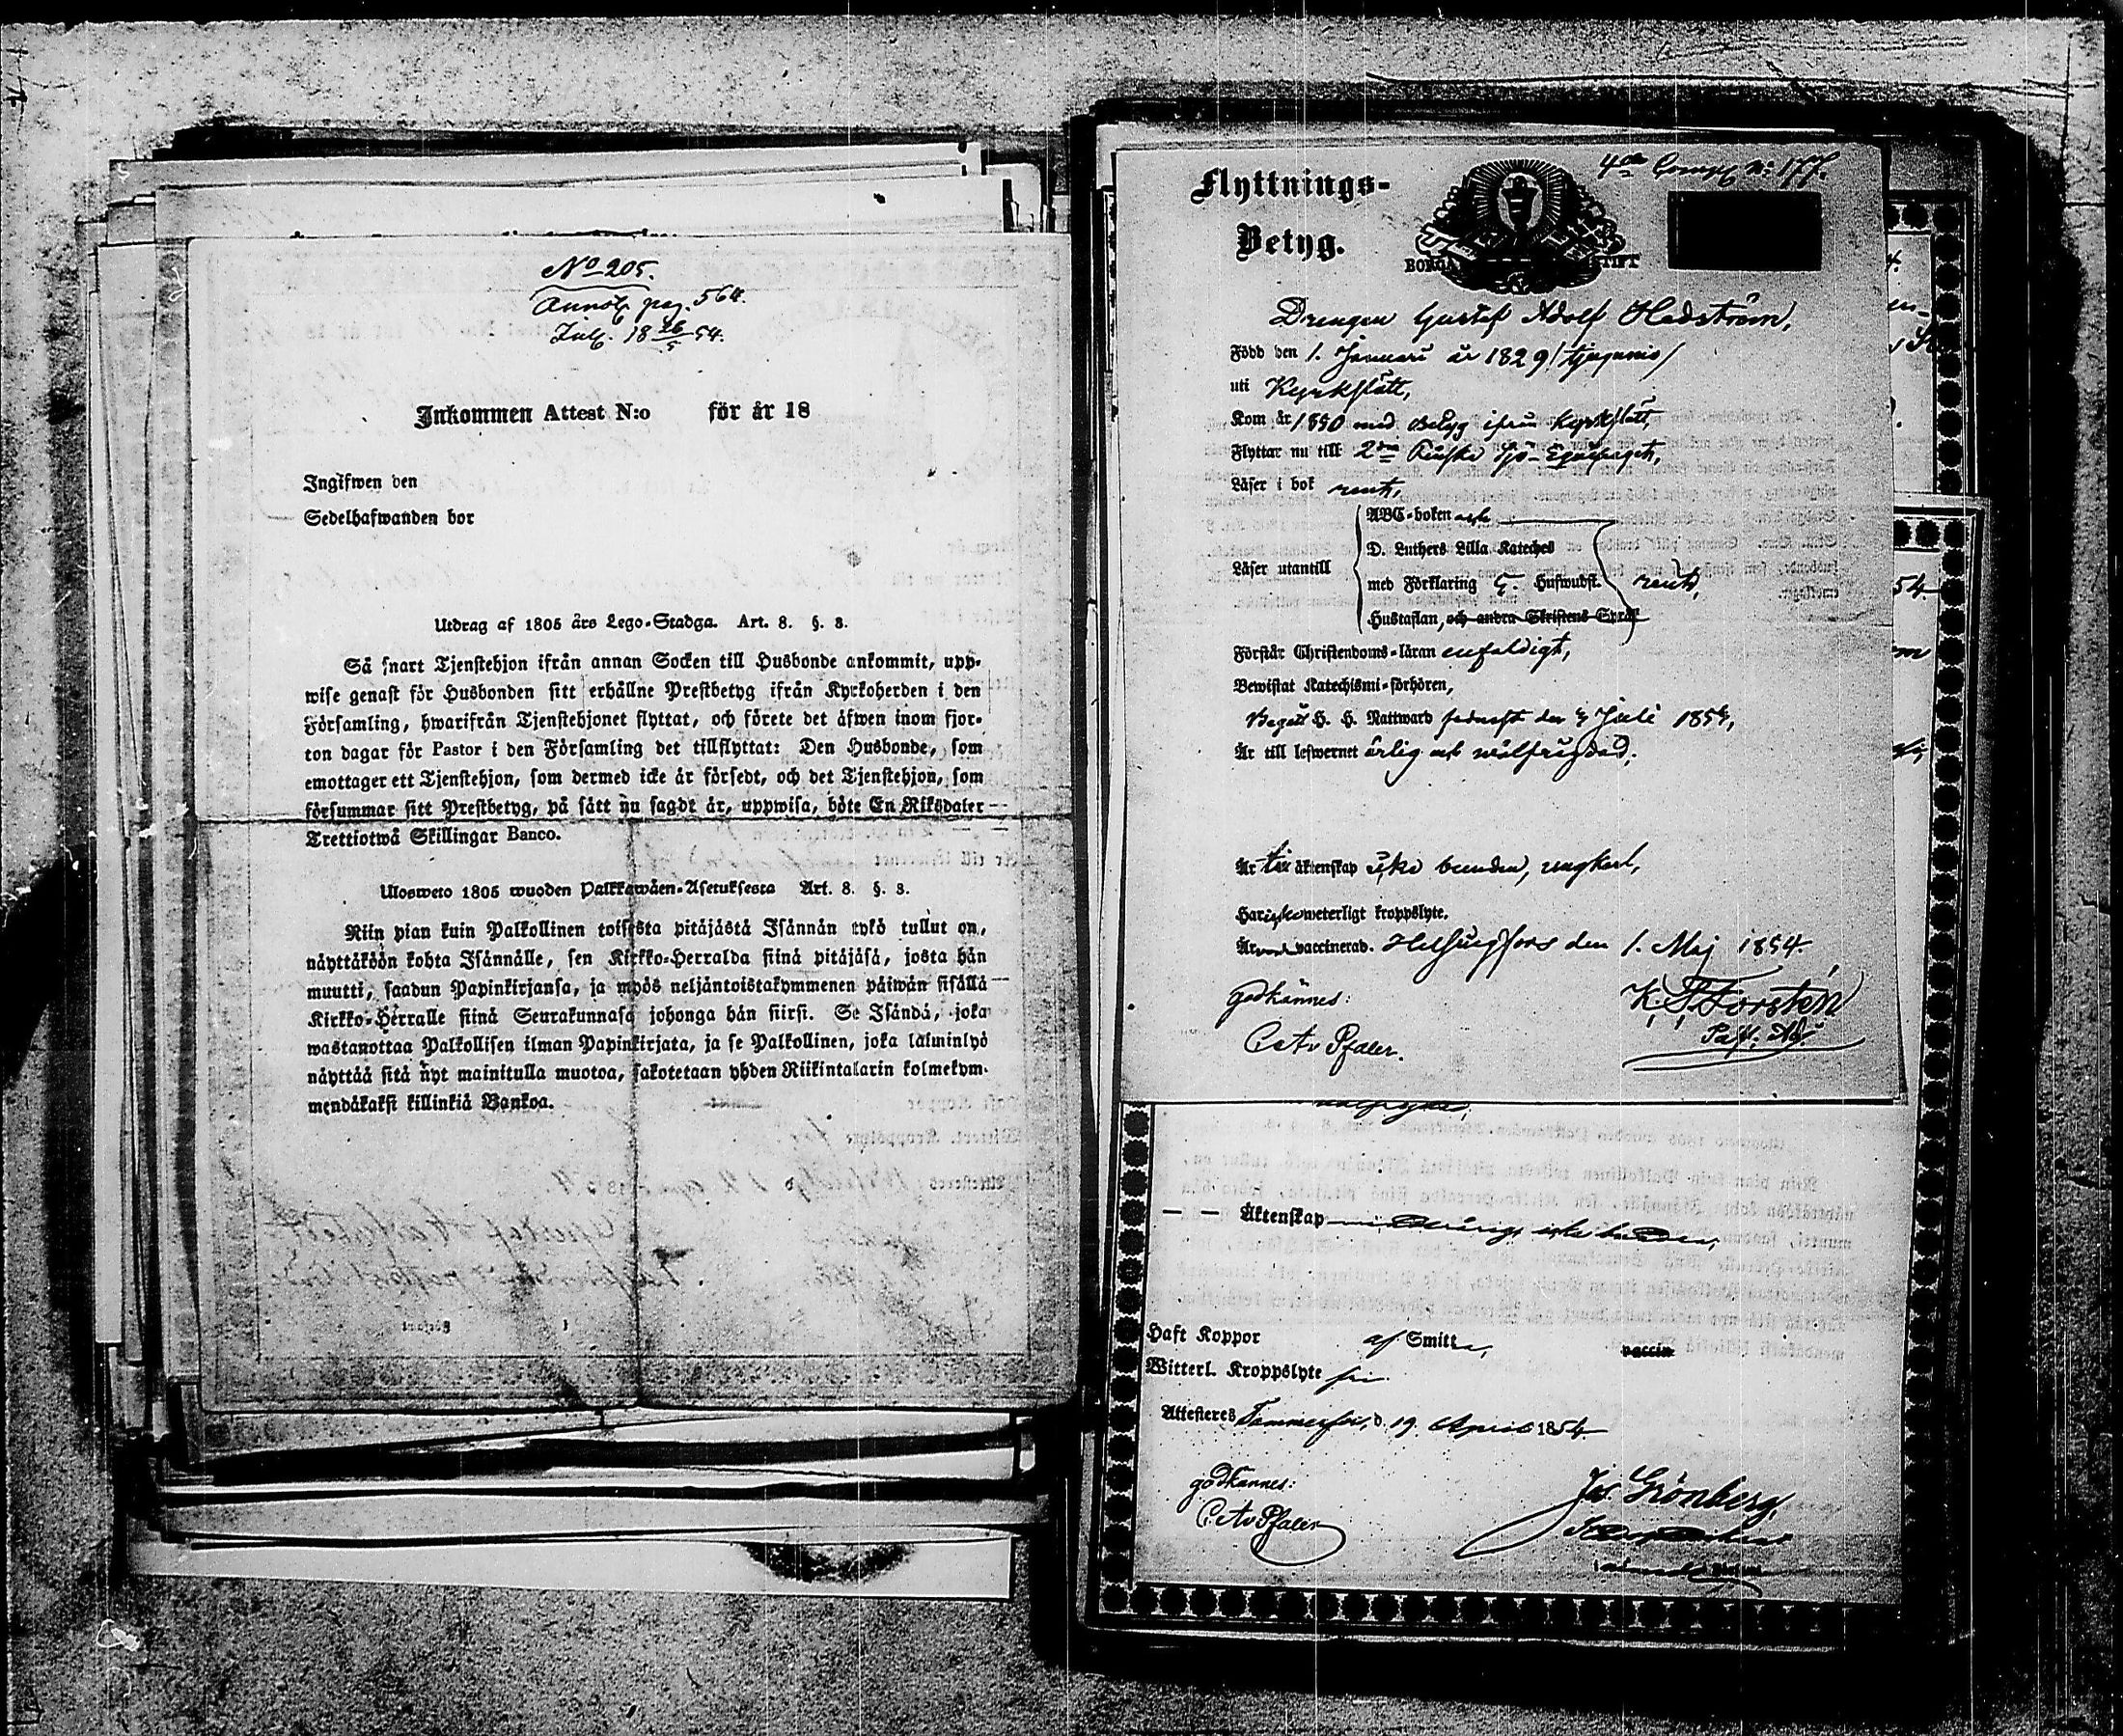 No 205.
Annot. pag. 564.
Julf. 18 26/5 54.
Inkommen Attest N:o för år 18
Ingifwen den
Sedelhafwanden bor
Utdrag af 1805 års Lego-Stadga. Art. 8. §. 3.
Så snart Tjenstehjon ifrån annan Socken till Husbonde ankommit, upp-
wise genast för Husbonden sitt erhållne Prestbetyg ifrån Kyrkoherden i den
Församling, hwarifrån Tjenstehjonet flyttat, och förete det äfwen inom fjor-
ton dagar för Pastor i den Församling det tillflyttat: Den Husbonde, som
emottager ett Tjenstehjon, som dermed icke är försedt, och det Tjenstehjon, som
försummar sitt Prestbetyg, på sätt nu sagdt är, uppwisa, böte En Riksdaler
Trettiotwå Skillingar Banco.
Ulosweto 1805 wuoden Palkkawäen-Asetuksesta Art. 8. §. 3.
Niin pian kuin Palkollinen toisesta pitäjästä Isännän tykö tullut on,
näyttäköön kohta Isännälle, sen Kirkko-Herralda siinä pitäjäsä, josta hän
muutti, saadun Papinkirjansa, ja myös neljäntoistakymmenen päiwän sisällä
Kirkko-Herralle siinä Seurakunnasa johonga hän siirsi. Se Isändä, joka
wastanottaa Palkollisen ilman Papinkirjata, ja se Palkollinen, joka laiminlyö
näyttää sitä nyt mainitulla muotoa, sakotetaan yhden Riikintalarin kolmekym-
mendäkaksi killinkiä Bankoa.
4de Comp. No 177.
Flyttnings-
Betyg.
BORGÅ STIFT
Drengen Gustaf Adolf Hedström,
Född den 1. Januari år 1829 /tjugunio/
uti Kyrkslätt,
Kom år 1850 med Betyg ifrån Kyrkslätt,
Flyttar nu till 2dra Finska Sjö-Equipaget,
Läser i bok rent,
ABC-boken och
D. Luthers Lilla Kateches
Läser utantill med Förklaring 5. Hufwudst. rent,
Hustaflan, och andra Skriftens Språk
Förstår Christendoms-läran enfaldigt,
Bewistat Katechismi-förhören,
Begått H. H. Nattward sednast den 4 Juli 1854,
Är till lefwernet ärlig och wälfrägdad;
Är till äktenskap icke bunden, ungkarl,
Har icke weterligt kroppslyte.
Är vaccinerad. Helsingfors den 1. Maj 1854.
Godkännes:
C A v Pfaler.
K. F. Forstén
Past. Adj.
Äktenskap minderårig icke bunden,
Haft Koppor af Smitta, vaccin
Witterl. Kroppslyte fri
Attesteres Tammerfors, d. 19. April 1854.
godkännes:
C A v Pfaler
Jos. Grönberg,